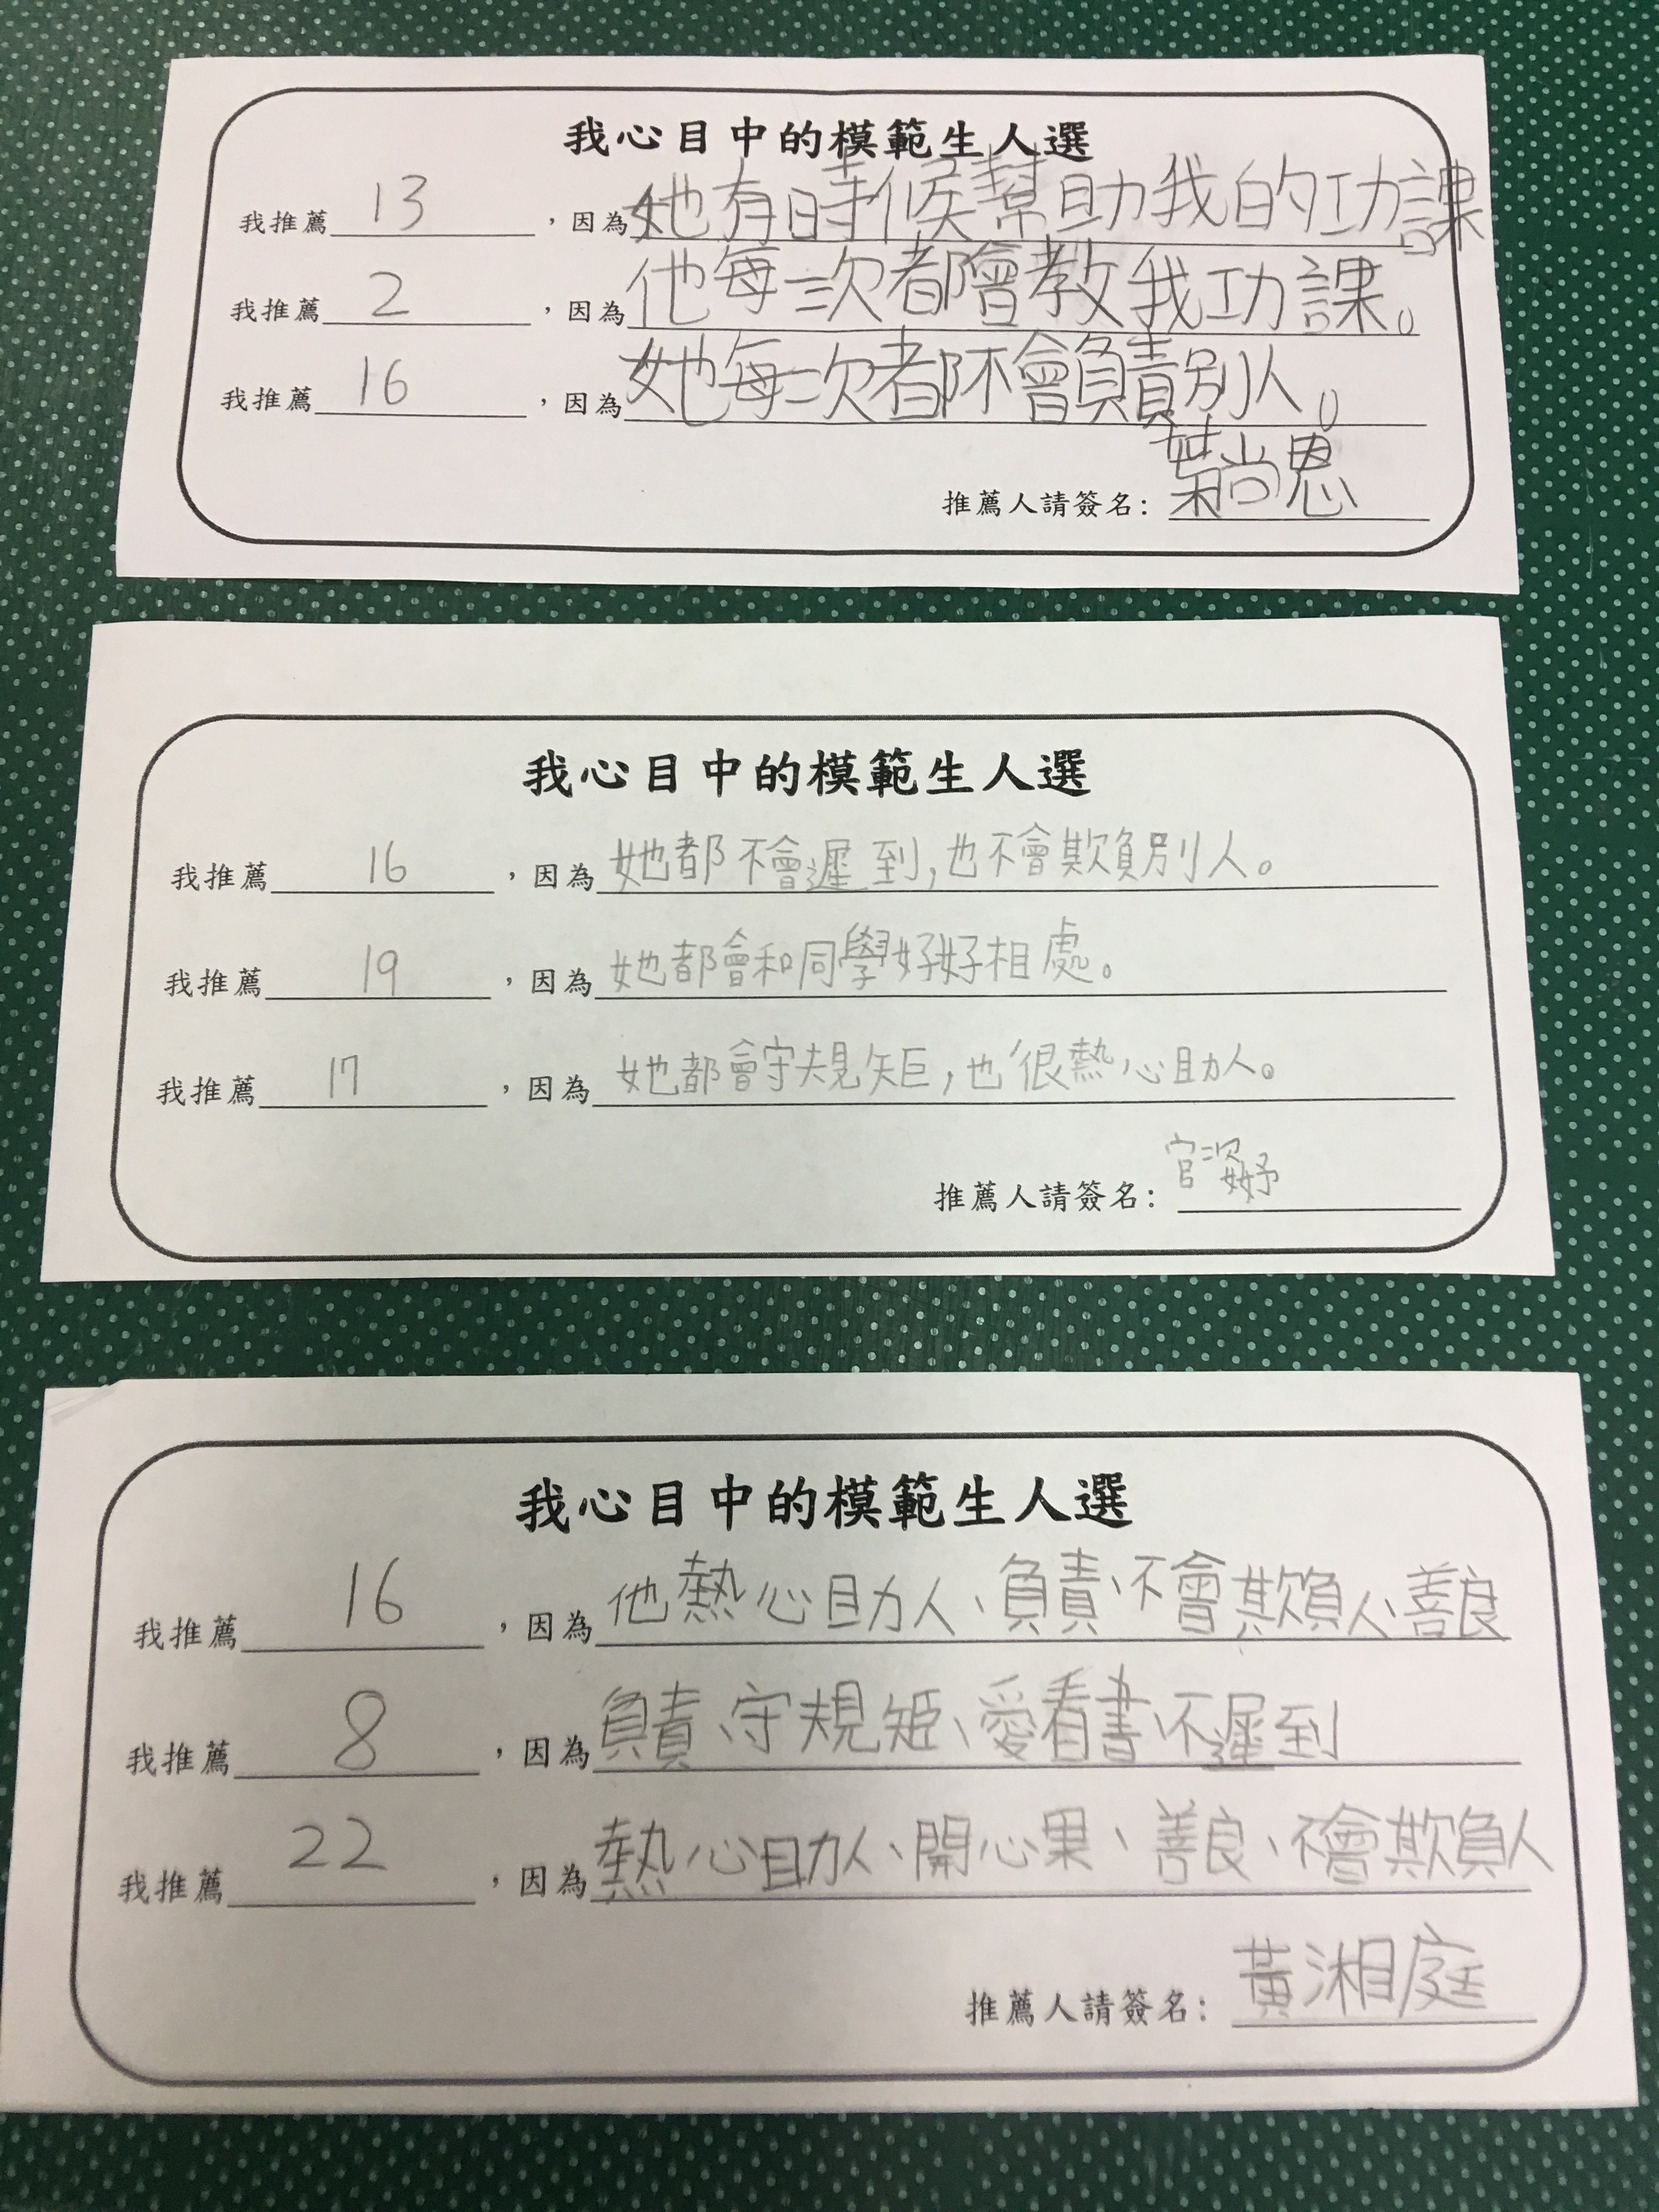 我心目中的模範生人選
我推薦 13 ，因為她有時候幫助我的功課
我推薦 2 ，因為他每一次都會教我功課。
我推薦 16 ，因為她每一次都不會負責別人。
推薦人請簽名：葉尚恩
我心目中的模範生人選
我推薦 16 ，因為她都不會遲到,也不會欺負別人。
我推薦 19 ，因為她都會和同學好好相處。
我推薦 17 ，因為她都會守規矩,也很熱心助人。
推薦人請簽名：官姿妤
我心目中的模範生人選
我推薦 16 ，因為他熱心助人、負責、不會欺負人、善良
我推薦 8 ，因為負責、守規矩、愛看書、不遲到
我推薦 22 ，因為熱心助人、開心果、善良、不會欺負人
推薦人請簽名：黃湘庭